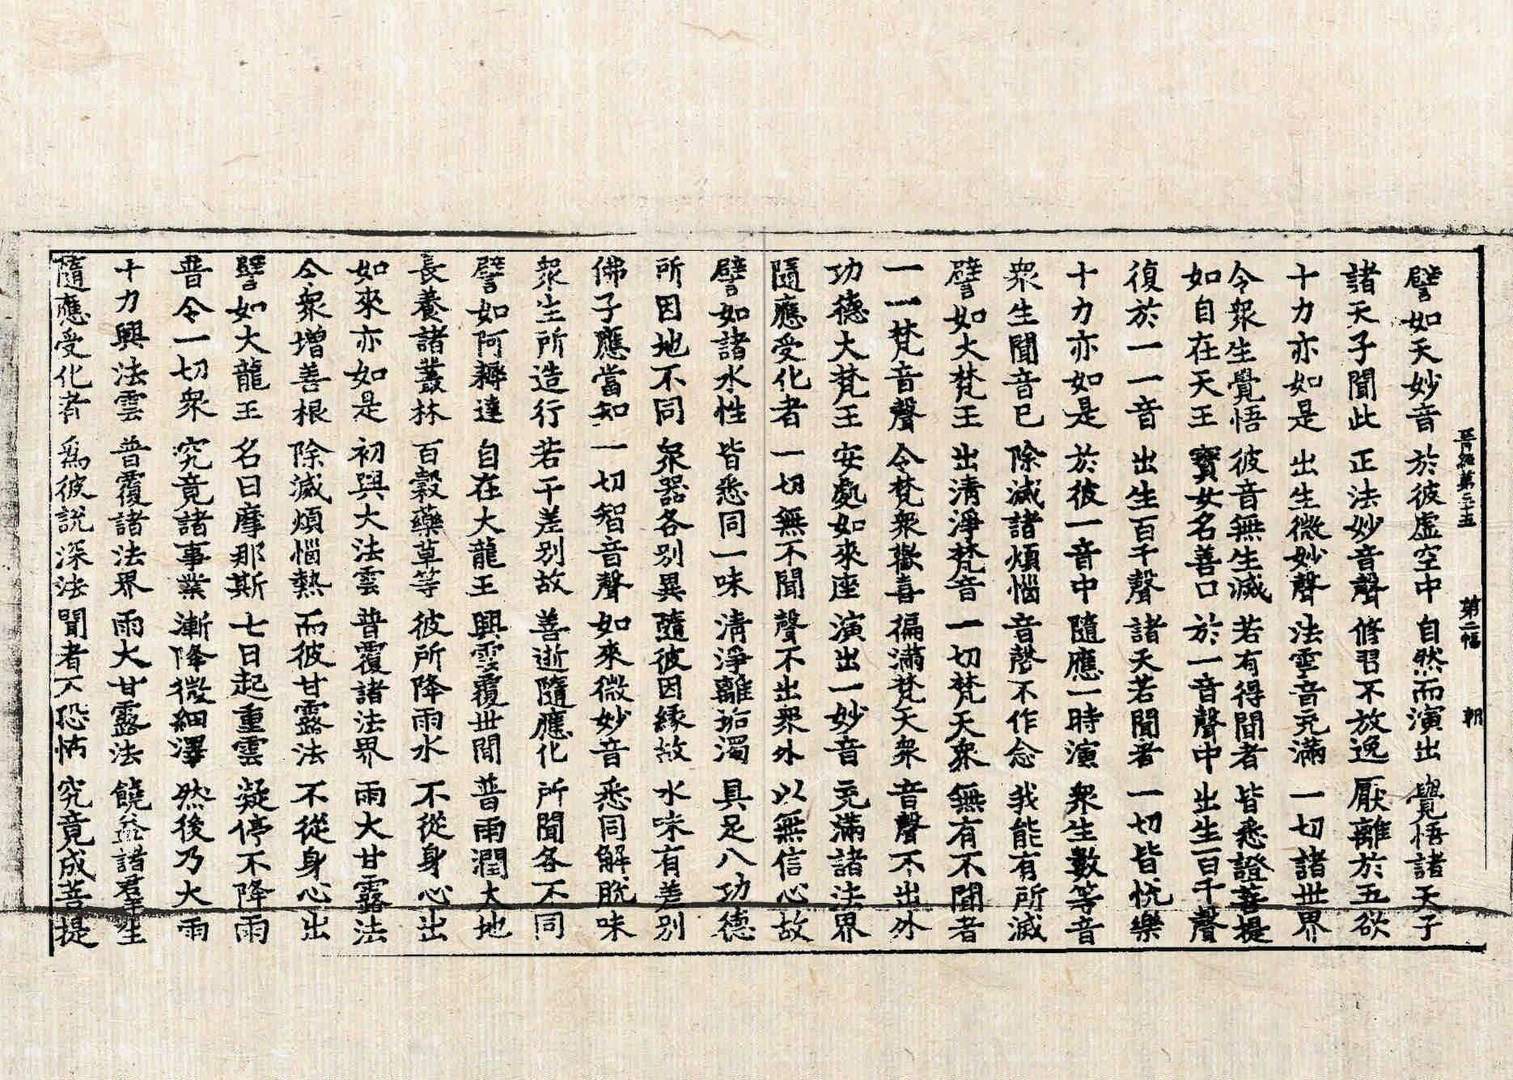 晋經第三十五　第二幅　朝
譬如天妙音　於彼虛空中　自然而演出　覺悟諸天子
諸天子聞此　正法妙音聲　修習不放逸　厭離於五欲
十力亦如是　出生微妙聲　法雲音充滿　一切諸世界
令衆生覺悟　彼音無生滅　若有得聞者　皆悉證菩提
如自在天王　寶女名善口　於一音聲中　出生百千聲
復於一一音　出生百千聲　諸天若聞者　一切皆悅樂
十力亦如是　於彼一音中　隨應一時演　衆生數等音
衆生聞音已　除滅諸煩惱　音聲不作念　我能有所滅
譬如大梵王　出清淨梵音　一切梵天衆　無有不聞者
一一梵音聲　令梵衆歡喜　徧滿梵天衆　音聲不出外
功德大梵王　安處如來座　演出一妙音　充滿諸法界
隨應受化者　一切無不聞　聲不出衆外　以無信心故
譬如諸水性　皆悉同一味　清淨離垢濁　具足八功德
所因地不同　衆器各別異　隨彼因緣故　水味有差別
佛子應當知　一切智音聲　如來微妙音　悉同解脫味
衆生所造行　若干差別故　善逝隨應化　所聞各不同
譬如阿耨達　自在大龍王　興雲覆世間　普雨潤大地
長養諸叢林　百穀藥草等　彼所降雨水　不從身心出
如來亦如是　初興大法雲　普覆諸法界　雨大甘露法
令衆增善根　除滅煩惱熱　而彼甘露法　不從身心出
譬如大龍王　名曰摩那斯　七日起重雲　凝停不降雨
普令一切衆　究竟諸事業　漸降微細澤　然後乃大雨
十力興法雲　普覆諸法界　雨大甘露法　饒益諸羣生
隨應受化者　爲彼說深法　聞者不恐怖　究竟成菩提